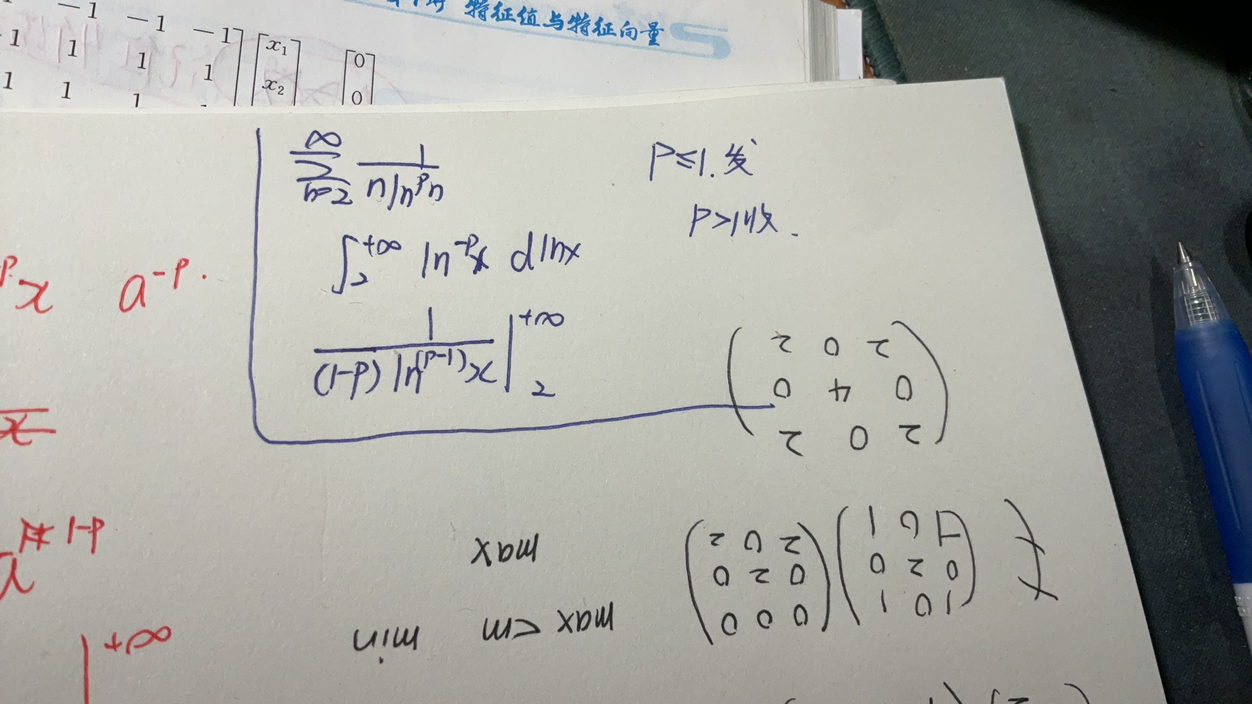 特征值与特征向量
-1 -1 -1
1 1 1 1 x₁ 0
1 1 1 x₂ 0
∞
∑ 1/(n ln^p n)
n=2
P≤1.发
P>1收.
∫₂^{+∞} ln^{-p}x dlnx
1/((1-p) ln^{(p-1)}x) |₂^{+∞}
^p x a^{-p}.
x
1-p
| +∞
2 0 2
0 4 0
2 0 2
max
max <m min
2 0 2 1 0 1
0 2 0 0 2 0
0 0 0 1 0 1